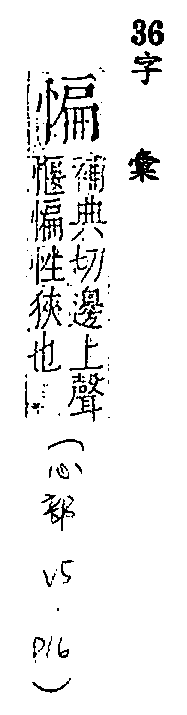 36字彙
惼
補典切邊上聲
惬惼性狹也
(心部 V5.P16)